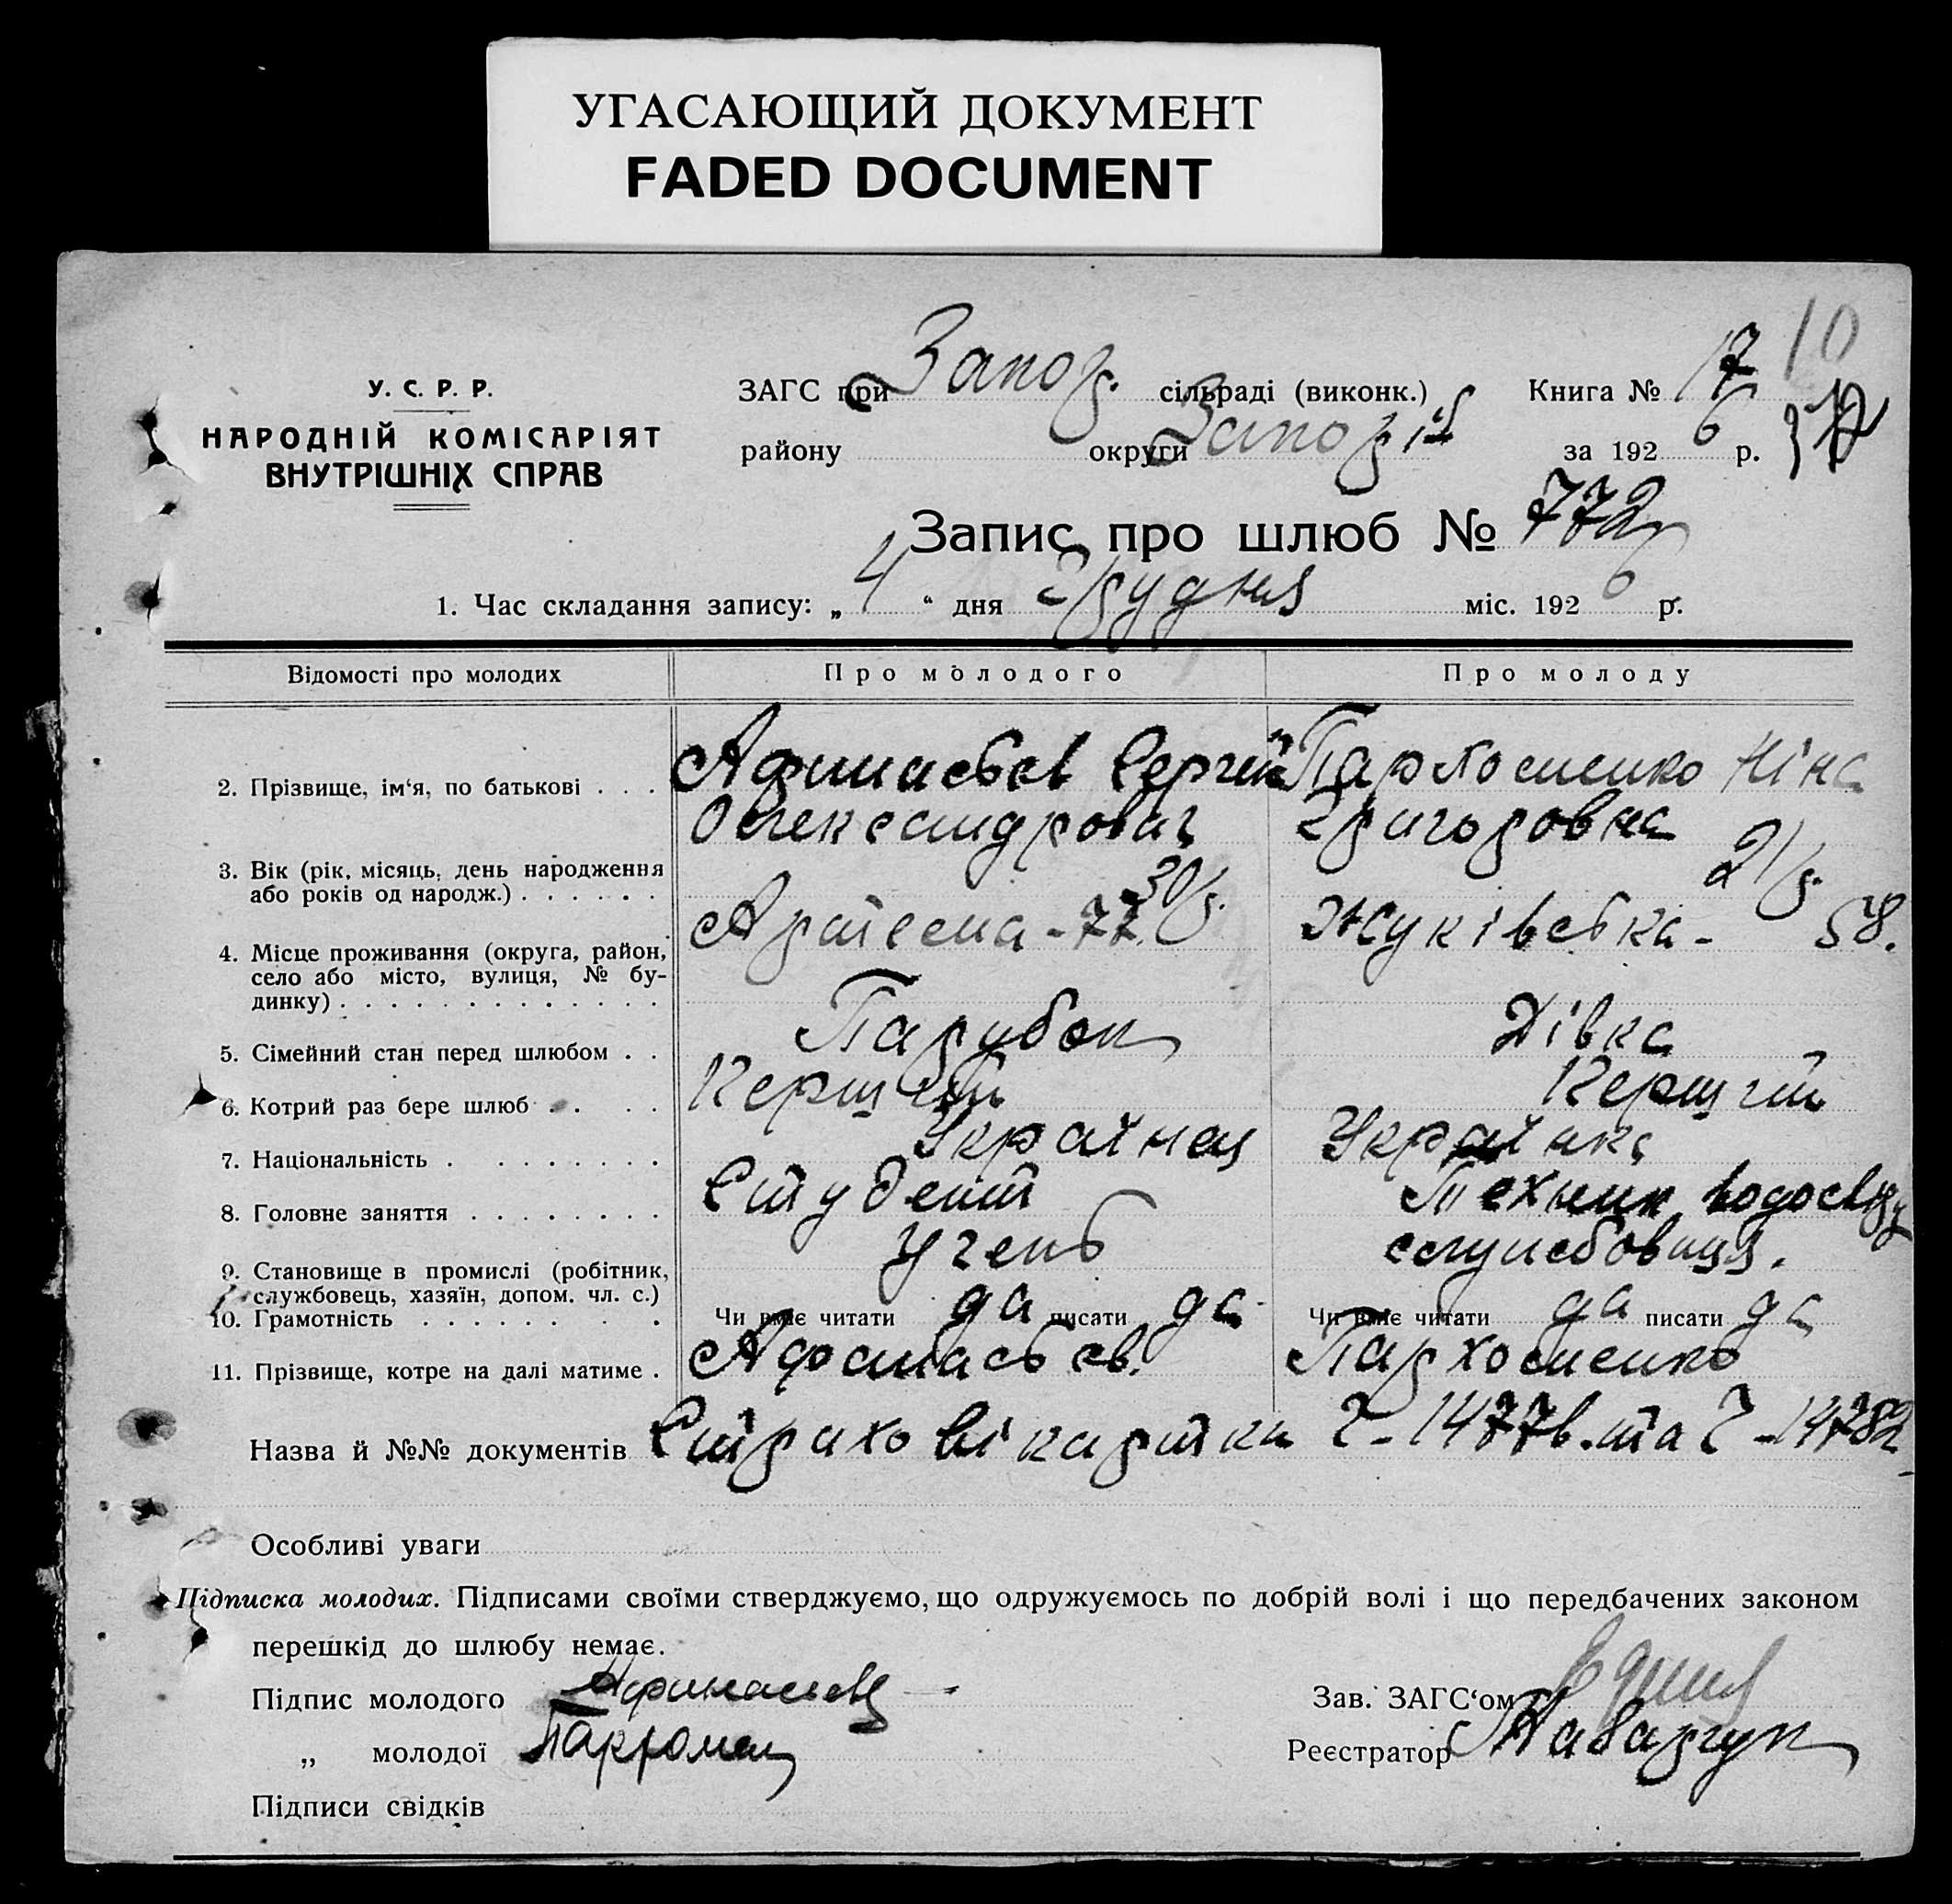 УГАСАЮЩИЙ ДОКУМЕНТ
FADED DOCUMENT
10
У. С. Р. Р.
НАРОДНІЙ КОМІСАРІЯТ
ВНУТРІШНІХ СПРАВ
ЗАГС при Запор. сільраді (виконк.) Книга № 17
району округи Запоріз за 1926 р.
Запис про шлюб № 772
1. Час складання запису: „4“ дня Грудня міс. 1926 р.
Відомості про молодих Про молодого Про молоду
2. Прізвище, ім‘я, по батькові . . . Афанасьєв Сергій Пархоменко Ніна
Олександрович Григоровна
3. Вік (рік, місяць, день народження
або років од народж.) . . . . . . 30 р. 21 р.
4. Місце проживання (округа, район, Артема - 77. Жуківська - 58.
село або місто, вулиця, № бу-
динку) . . . . . . . . . . . . .
5. Сімейний стан перед шлюбом . . Парубок Дівка
6. Котрий раз бере шлюб . . . . Перший Перший
7. Національність . . . . . . . . Українец Українка
8. Головне заняття . . . . . . . . Студент Техник
9. Становище в промислі (робітник, Учень службовиця.
службовець, хазяїн, допом. чл. с.)
10. Грамотність . . . . . . . . Чи вміє читати да писати да Чи вміє читати да писати да
11. Прізвище, котре на далі матиме . Афанасьєв. Пархоменко
Назва й №№ документів Страхові картки Ч - 14776. та Ч - 14782
Особливі уваги
Підписка молодих. Підписами своїми стверджуємо, що одружуємось по добрій волі і що передбачених законом
перешкід до шлюбу немає.
Підпис молодого Афанасьев Зав. ЗАГС‘ом
„ молодої Пархомен Реєстратор
Підписи свідків